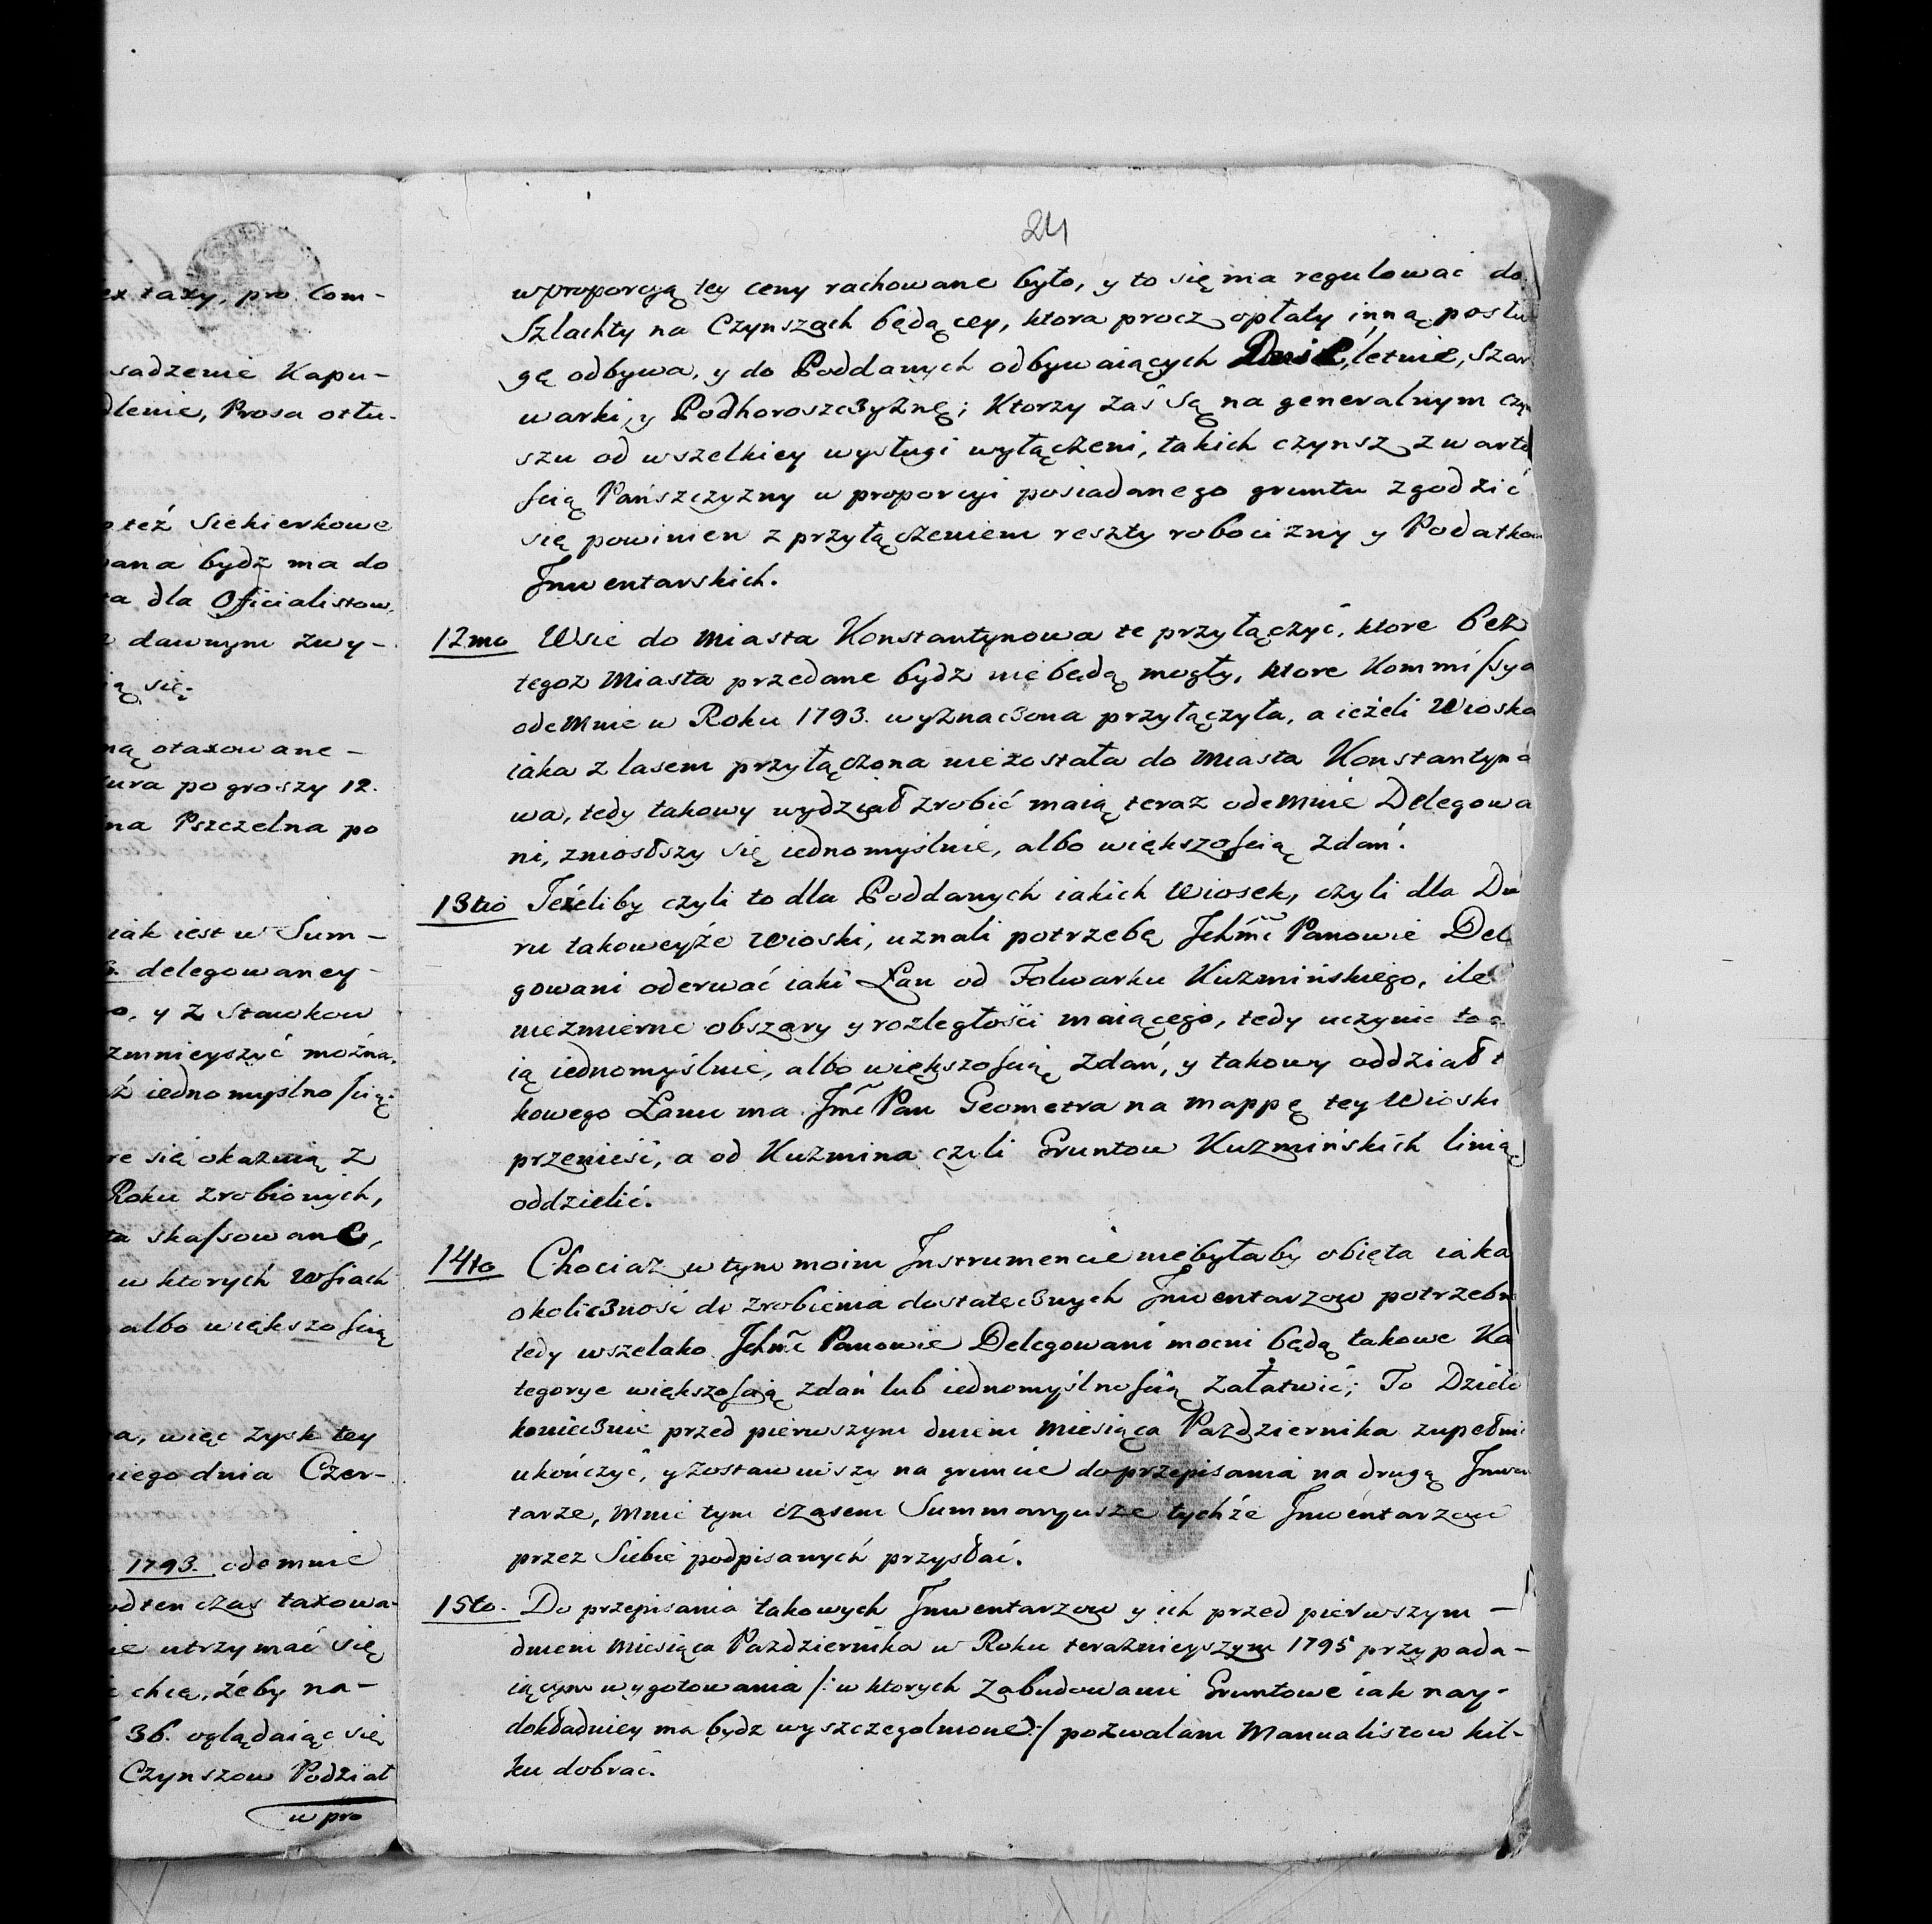 ex taxy, pro Com-
sadzenie Kapu-
dlenie, Prosa otłu-
też Siekierkowe
wana bydź ma do
ta dla Oficialistow,
z dawnym zwy-
ią się.
ną otaxowane -
tura po groszy 12.
na Pszczelna po
iak iest w Sum-
delegowaney -
o, y z Stawkow
zmnieyszyć można,
ź iednomyslnością:
re się okazuią z
Roku zrobionych,
ta skassowane,
w ktorych Wsiach
albo większością
a, więc zysk tey
niego dnia Czer-
1793. odemnie
odten czas taxowa-
ie utrzymać się
chcę, żeby na-
36. oglądaiąc się
Czynszow Podział
w pro
24
w proporcyą tey ceny rachowane było, y to się ma regulować do
Szlachty na Czynszach będącey, ktora procz opłaty inną posłu
gę odbywa, y do Poddanych odbywaiących Dnie, letnie, Szar
warki, y Podhoroszczyznę; Ktorzy zaś są na generalnym czyn
szu od wszelkiey wysługi wyłączeni, takich czynsz z warto
ścią Pańszczyzny w proporcyi posiadanego gruntu zgodzić
się powinien z przyłączeniem reszty robocizny y Podatkow
Inwentarskich.
12mo Wsie do Miasta Konstantynowa te przyłączyć, ktore bez
tegoz Miasta przedane bydz niebędą mogły, ktore Kommissya
odemnie w Roku 1793. wyznaczona przyłączyła, a ieżeli Wioska
iaka z lasem przyłączona niezostała do Miasta Konstantyno
wa, tedy takowy wydział zrobić maią teraz odemnie Delegowa
ni, zniosłszy się iednomyślnie, albo większością zdań.
13tio Jeżeliby czyli to dla Poddanych iakich Wiosek, czyli dla Dw
ru takoweyże Wioski, uznali potrzebę Jchmć Panowie Dele
gowani oderwać iaki Łan od Folwarku Kuzmińskiego, ile
niezmierne obszary y rozległości maiącego, tedy uczynić to
ią iednomyślnie, albo większością zdań, y takowy oddział t
kowego Łanu ma Jmć Pan Geometra na mappę tey Wioski
przenieść, a od Kuzmina czyli Gruntow Kuzmińskich linią
oddzielić.
14to Chociaz w tym moim Instrumencie niebyłaby obięta iaka
okoliczność do zrobienia dostatecznych Inwentarzow potrzebn
tedy wszelako Jchmć Panowie Delegowani mocni będą takowe Ka
tegorye większością zdań lub iednomyślnością załatwić; To Dzieło
koniecznie przed pierwszym dniem Miesiąca Pazdziernika zupełni
ukończyć, y zostawiwszy na gruncie do przepisania na drugą Inwen
tarze, Mnie tym czasem Summaryusze tychże Inwentarzow
przez Siebie podpisanych przysłać.
15to. Do przepisania takowych Inwentarzow y ich przed pierwszym -
dniem Miesiąca Pazdziernika w Roku terazнieyszym 1795 przypada-
iącym wygotowania /: w ktorych Zabudowanie Gruntowe iak nay-
dokładniey ma bydz wyszczegolnione :/ pozwalam Manualistow kil-
ku dobrać.